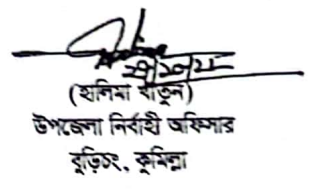 ২০/১০/২২
(হালিমা খাতুন)
উপজেলা নির্বাহী অফিসার
বুড়িচং, কুমিল্লা